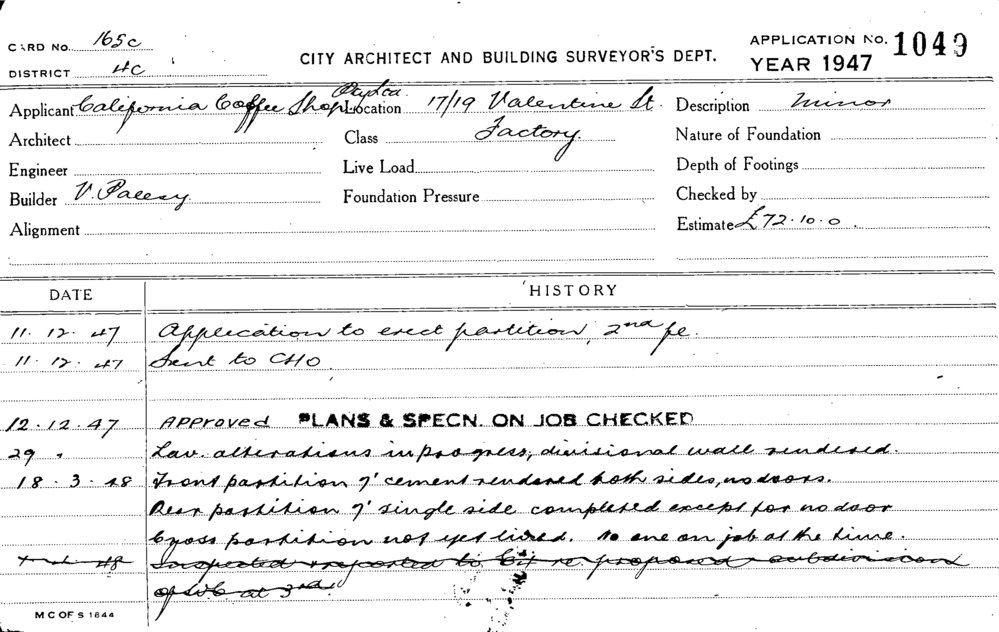 CARD NO. 165c
DISTRICT 4C
CITY ARCHITECT AND BUILDING SURVEYOR'S DEPT.
APPLICATION NO. 1049
YEAR 1947
Applicant California Coffee Shops Pty Ltd. Location 17/19 Valentine St. Description minor
Architect Class Factory. Nature of Foundation
Engineer Live Load Depth of Footings
Builder V. Foundation Pressure Checked by
Alignment Estimate £72.10.0.
DATE HISTORY
11.12.47 Application to erect partition, 2nd
11.12.47 Sent to CHO
12.12.47 APProved PLANS & SPECN. ON JOB CHECKED
29 " Lav. alterations in progress, divisional wall rendered.
18.3.48 Front partition 7' cement rendered both sides, no doors.
Rear partition 7' single side completed except for no door
Cross partition not yet lined. No one on job at the time.
48 Inspected & reported to re proposed subdivision
of at 3rd.
M C OF S 1644